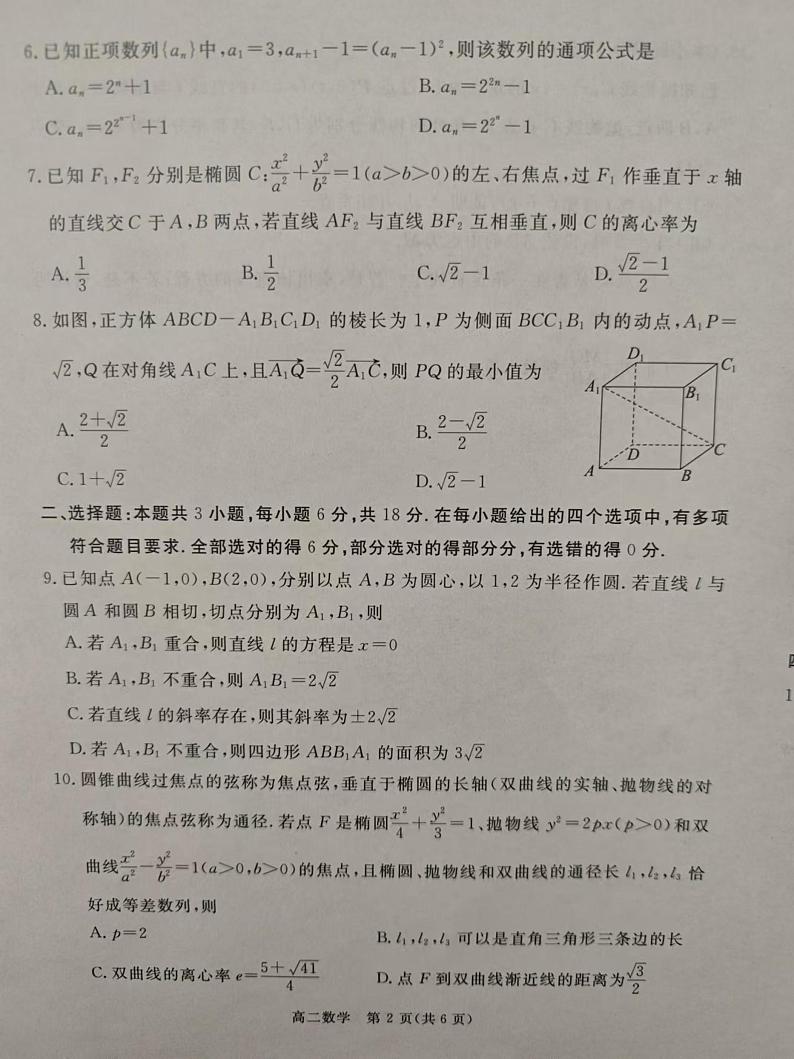 6.已知正项数列{aₙ}中,a₁=3,aₙ₊₁-1=(aₙ-1)²,则该数列的通项公式是
A. aₙ=2ⁿ+1
B. aₙ=2²ⁿ-1
C. aₙ=2^{2^{n-1}}+1
D. aₙ=2^{2^n}-1
7.已知 F₁,F₂ 分别是椭圆 C:x²/a²+y²/b²=1(a>b>0)的左、右焦点,过 F₁ 作垂直于 x 轴
的直线交C 于A,B 两点,若直线 AF₂ 与直线 BF₂ 互相垂直,则 C 的离心率为
A. 1/3
B. 1/2
C. √2-1
D. (√2-1)/2
8.如图,正方体 ABCD-A₁B₁C₁D₁ 的棱长为 1,P 为侧面 BCC₁B₁ 内的动点,A₁P=
√2,Q在对角线A₁C上,且A₁Q→=(√2/2)A₁C→,则 PQ的最小值为
A. (2+√2)/2
B. (2-√2)/2
C. 1+√2
D. √2-1
D₁
C₁
A₁
B₁
D
C
A
B
二、选择题:本题共 3 小题,每小题 6 分,共 18 分.在每小题给出的四个选项中,有多项
符合题目要求.全部选对的得 6 分,部分选对的得部分分,有选错的得 0 分.
9.已知点 A(-1,0),B(2,0),分别以点 A,B 为圆心,以 1,2 为半径作圆.若直线 l 与
圆 A 和圆 B 相切,切点分别为 A₁,B₁,则
A.若 A₁,B₁ 重合,则直线 l 的方程是 x=0
B.若 A₁,B₁ 不重合,则 A₁B₁=2√2
C.若直线 l 的斜率存在,则其斜率为±2√2
D.若 A₁,B₁ 不重合,则四边形 ABB₁A₁ 的面积为 3√2
10.圆锥曲线过焦点的弦称为焦点弦,垂直于椭圆的长轴(双曲线的实轴、抛物线的对
称轴)的焦点弦称为通径.若点 F 是椭圆x²/4+y²/3=1、抛物线 y²=2px(p>0)和双
曲线x²/a²-y²/b²=1(a>0,b>0)的焦点,且椭圆、抛物线和双曲线的通径长 l₁,l₂,l₃ 恰
好成等差数列,则
A. p=2
B. l₁,l₂,l₃ 可以是直角三角形三条边的长
C.双曲线的离心率 e=(5+√41)/4
D.点 F 到双曲线渐近线的距离为√3/2
高二数学 第 2 页(共 6 页)